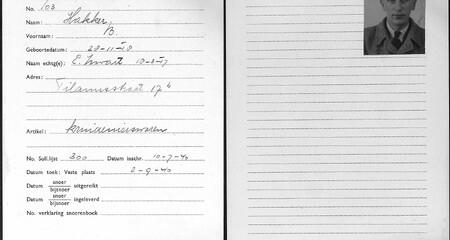 No. 103
Naam: Hakker
Voornaam: B.
Geboortedatum: 28-11-18
Naam echtg(e): E. Zwart 10-8-17
Adres:
Tilanusstraat 17
Artikel: kruidenierswaren
No. Soll.lijst 300 Datum inschr. 10-7-40
Datum toek: Vaste plaats 2-9-40
Datum snoer bijsnoer uitgereikt
Datum snoer bijsnoer ingeleverd
No. verklaring snoerenboek